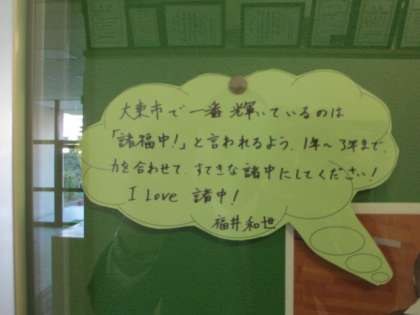 大東市で一番輝いているのは
「諸福中！」と言われるよう、1年～3年まで、
力を合わせて、すてきな諸中にしてください！
I Love 諸中！
福井和世